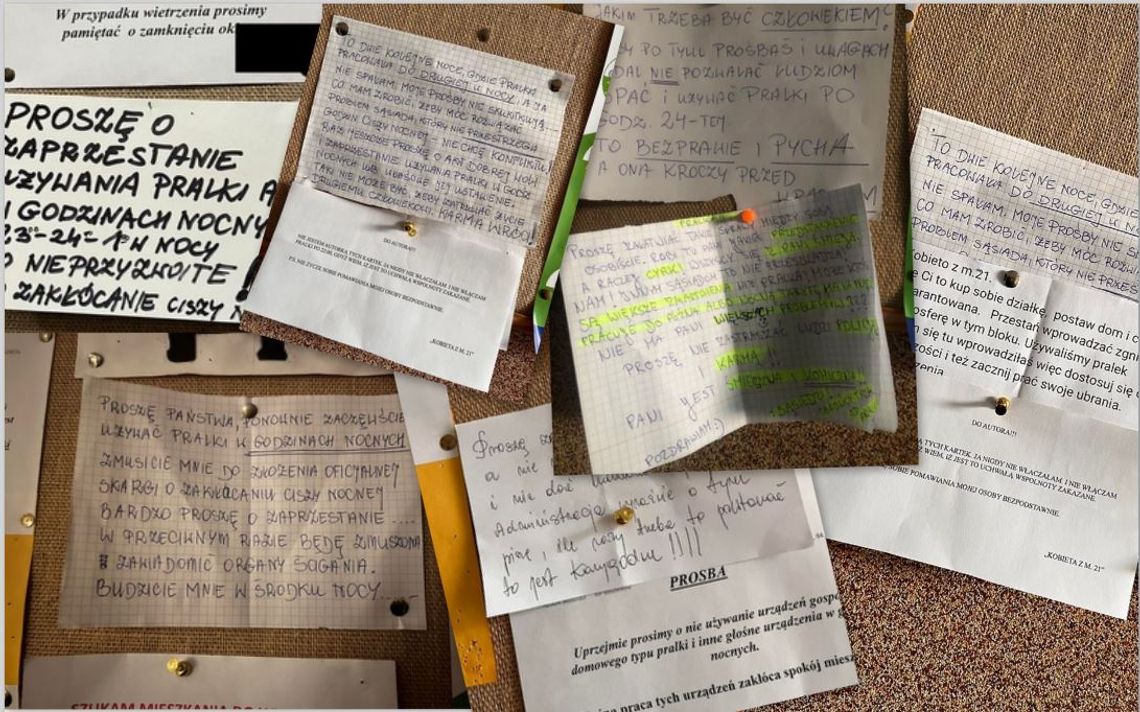 W przypadku wietrzenia prosimy
pamiętać o zamknięciu
PROSZĘ O
ZAPRZESTANIE
UŻYWANIA PRALKI
GODZINACH
W NOCY
NIEPRZYZWOITE
ZAKŁÓCANIE CISZY
TO DWIE KOLEJNE NOCE, GDZIE PRALKA
PRACOWAŁA DO DRUGIEJ W NOCY, A JA
NIE SPAŁAM. MOJE PROŚBY NIE SKUTKUJĄ...
CO MAM ZROBIĆ, ŻEBY MÓC ROZWIĄZAĆ
PROBLEM SĄSIADA, KTÓRY NIE PRZESTRZEGA
GODZIN CISZY NOCNEJ. NIE CHCĘ KONFLIKTU,
RAZ JESZCZE PROSZĘ O AKT DOBREJ WOLI
I ZAPRZESTANIE UŻYWANIA PRALKI W GODZ.
NOCNYCH
TAK NIE MOŻE BYĆ, ŻEBY ZATRUWAĆ ŻYCIE
DRUGIEMU CZŁOWIEKOWI. KARMA WRÓCI
DO AUTORA!!!
NIE JESTEM AUTORKĄ TYCH KARTEK. JA NIGDY NIE WŁĄCZAŁAM I NIE WŁĄCZAM
PRALKI PO 22.00, GDYŻ WIEM, IŻ JEST TO UCHWAŁĄ WSPÓLNOTY ZAKAZANE.
P.S. NIE ŻYCZĘ SOBIE POMAWIANIA MOJEJ OSOBY BEZPODSTAWNIE.
„KOBIETA Z M. 21"
JAKIM TRZEBA BYĆ CZŁOWIEKIEM?
PO TYLU PROŚBACH I UWAGACH
NIE POZWALAĆ LUDZIOM
SPAĆ I UŻYWAĆ PRALKI PO
GODZ. 24-TEJ
TO BEZPRAWIE I PYCHA
A ONA KROCZY PRZED
PROSZĘ ZAŁATWIAĆ TAKIE SPRAWY MIĘDZY SOBĄ
OSOBIŚCIE. ROBI TO PANI ZAWSZE PRZEDSTAWIENIE
A RACZEJ CYRK!
NAM! INNYM SĄSIADOM TO NIE PRZESZKADZA,
SĄ WIĘKSZE ZMARTWIENIA NIŻ PRALKA!
NIE MA PANI WIĘKSZYCH PROBLEMÓW???
PROSZĘ NIE ZASTRASZAĆ LUDZI POLICJĄ
I KARMĄ!!
PANI JEST ŚMIESZNA I
POZDRAWIAM :)
TO DWIE KOLEJNE NOCE, GDZIE
PRACOWAŁA DO DRUGIEJ W
NIE SPAŁAM. MOJE PROŚBY NIE
CO MAM ZROBIĆ, ŻEBY MÓC
PROBLEM SĄSIADA, KTÓRY NIE
Kobieto z m.21.
Ci to kup sobie działkę, postaw dom i
Przestań wprowadzać
w tym bloku. Używaliśmy pralek
się tu wprowadziłaś więc dostosuj się
i też zacznij prać swoje ubrania.
DO AUTORA!!!
TYCH KARTEK. JA NIGDY NIE WŁĄCZAŁAM I NIE WŁĄCZAM
WIEM, IŻ JEST TO UCHWAŁĄ WSPÓLNOTY ZAKAZANE.
SOBIE POMAWIANIA MOJEJ OSOBY BEZPODSTAWNIE.
„KOBIETA Z M. 21"
PROSZĘ PAŃSTWA, PONOWNIE ZACZĘLIŚCIE
UŻYWAĆ PRALKI W GODZINACH NOCNYCH
ZMUSICIE MNIE DO ZŁOŻENIA OFICJALNEJ
SKARGI O ZAKŁÓCANIU CISZY NOCNEJ
BARDZO PROSZĘ O ZAPRZESTANIE ....
W PRZECIWNYM RAZIE BĘDĘ ZMUSZONA
ZAWIADOMIĆ ORGANY ŚCIGANIA.
BUDZICIE MNIE W ŚRODKU NOCY.....
Proszę
a nie
i nie dać
Administracja właśnie o tym
pisze, ile razy trzeba to
to jest !!!!
PROŚBA
Uprzejmie prosimy o nie używanie urządzeń
domowego typu pralki i inne głośne urządzenia w
nocnych.
praca tych urządzeń zakłóca spokój
SZUKAM MIESZKANIA DO